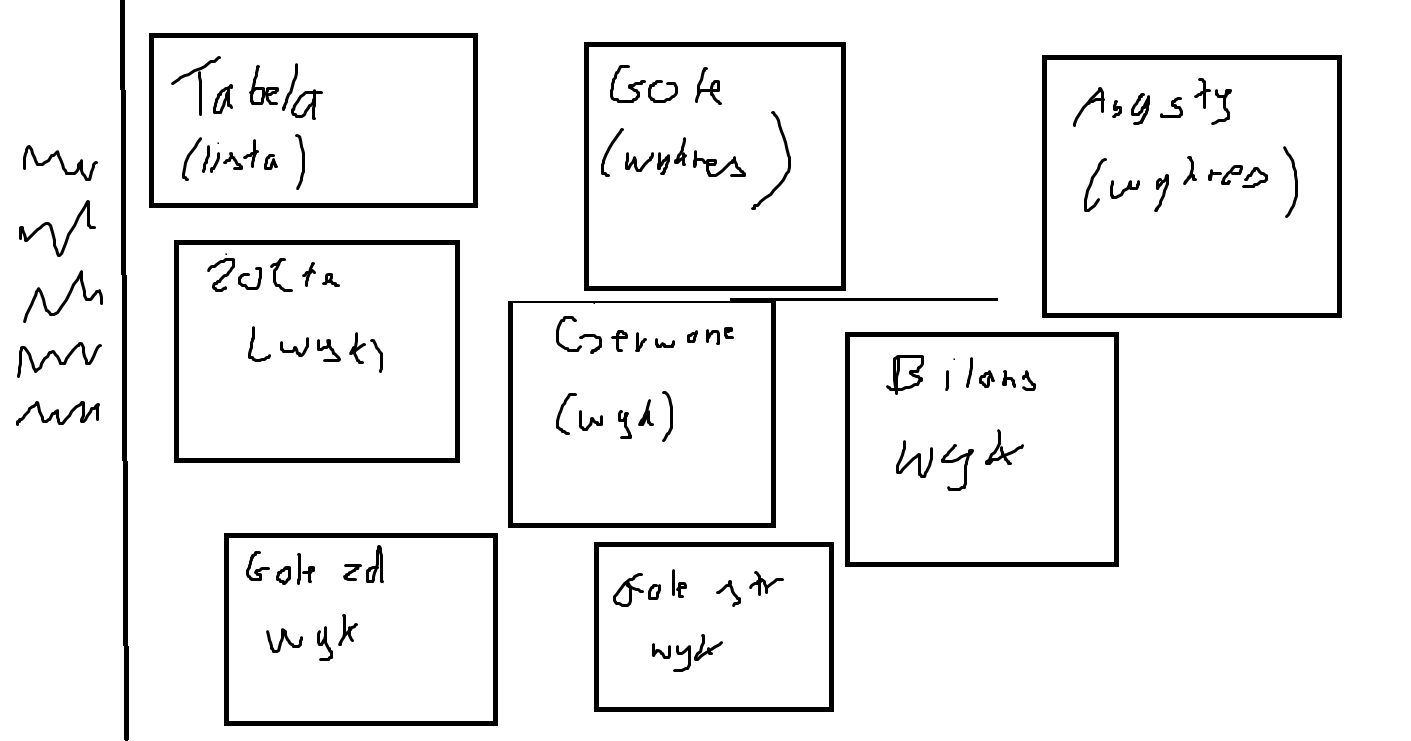 Tabela
(lista)
Gole
(wykres)
Asysty
(wykres)
Żółte
(wyk)
Czerwone
(wyk)
Bilans
wyk
Gole zd
wyk
Gole str
wyk